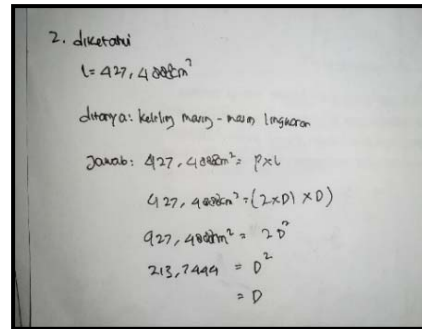 2. diketahui
L = 427,4888cm²
ditanya: keliling masing-masing lingkaran
Jawab: 427,4888cm² = p x l
427,4888cm² = (2 x D) x D)
427,4888cm² = 2D²
213,7444 = D²
= D